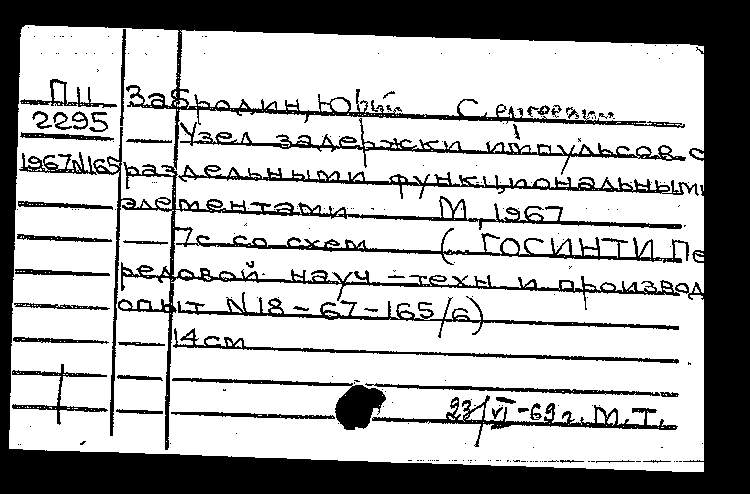 П11 Забродин, Юрий Сергеевич
2295 Узел задержки импульсов с
1967N165 раздельными функциональными
элементами М., 1967
7с со схем (... ГОСИНТИ. Пе
редовой науч-техн и производ
опыт N18-67-165/6)
14 см
23/VI-69 г. М.Т.